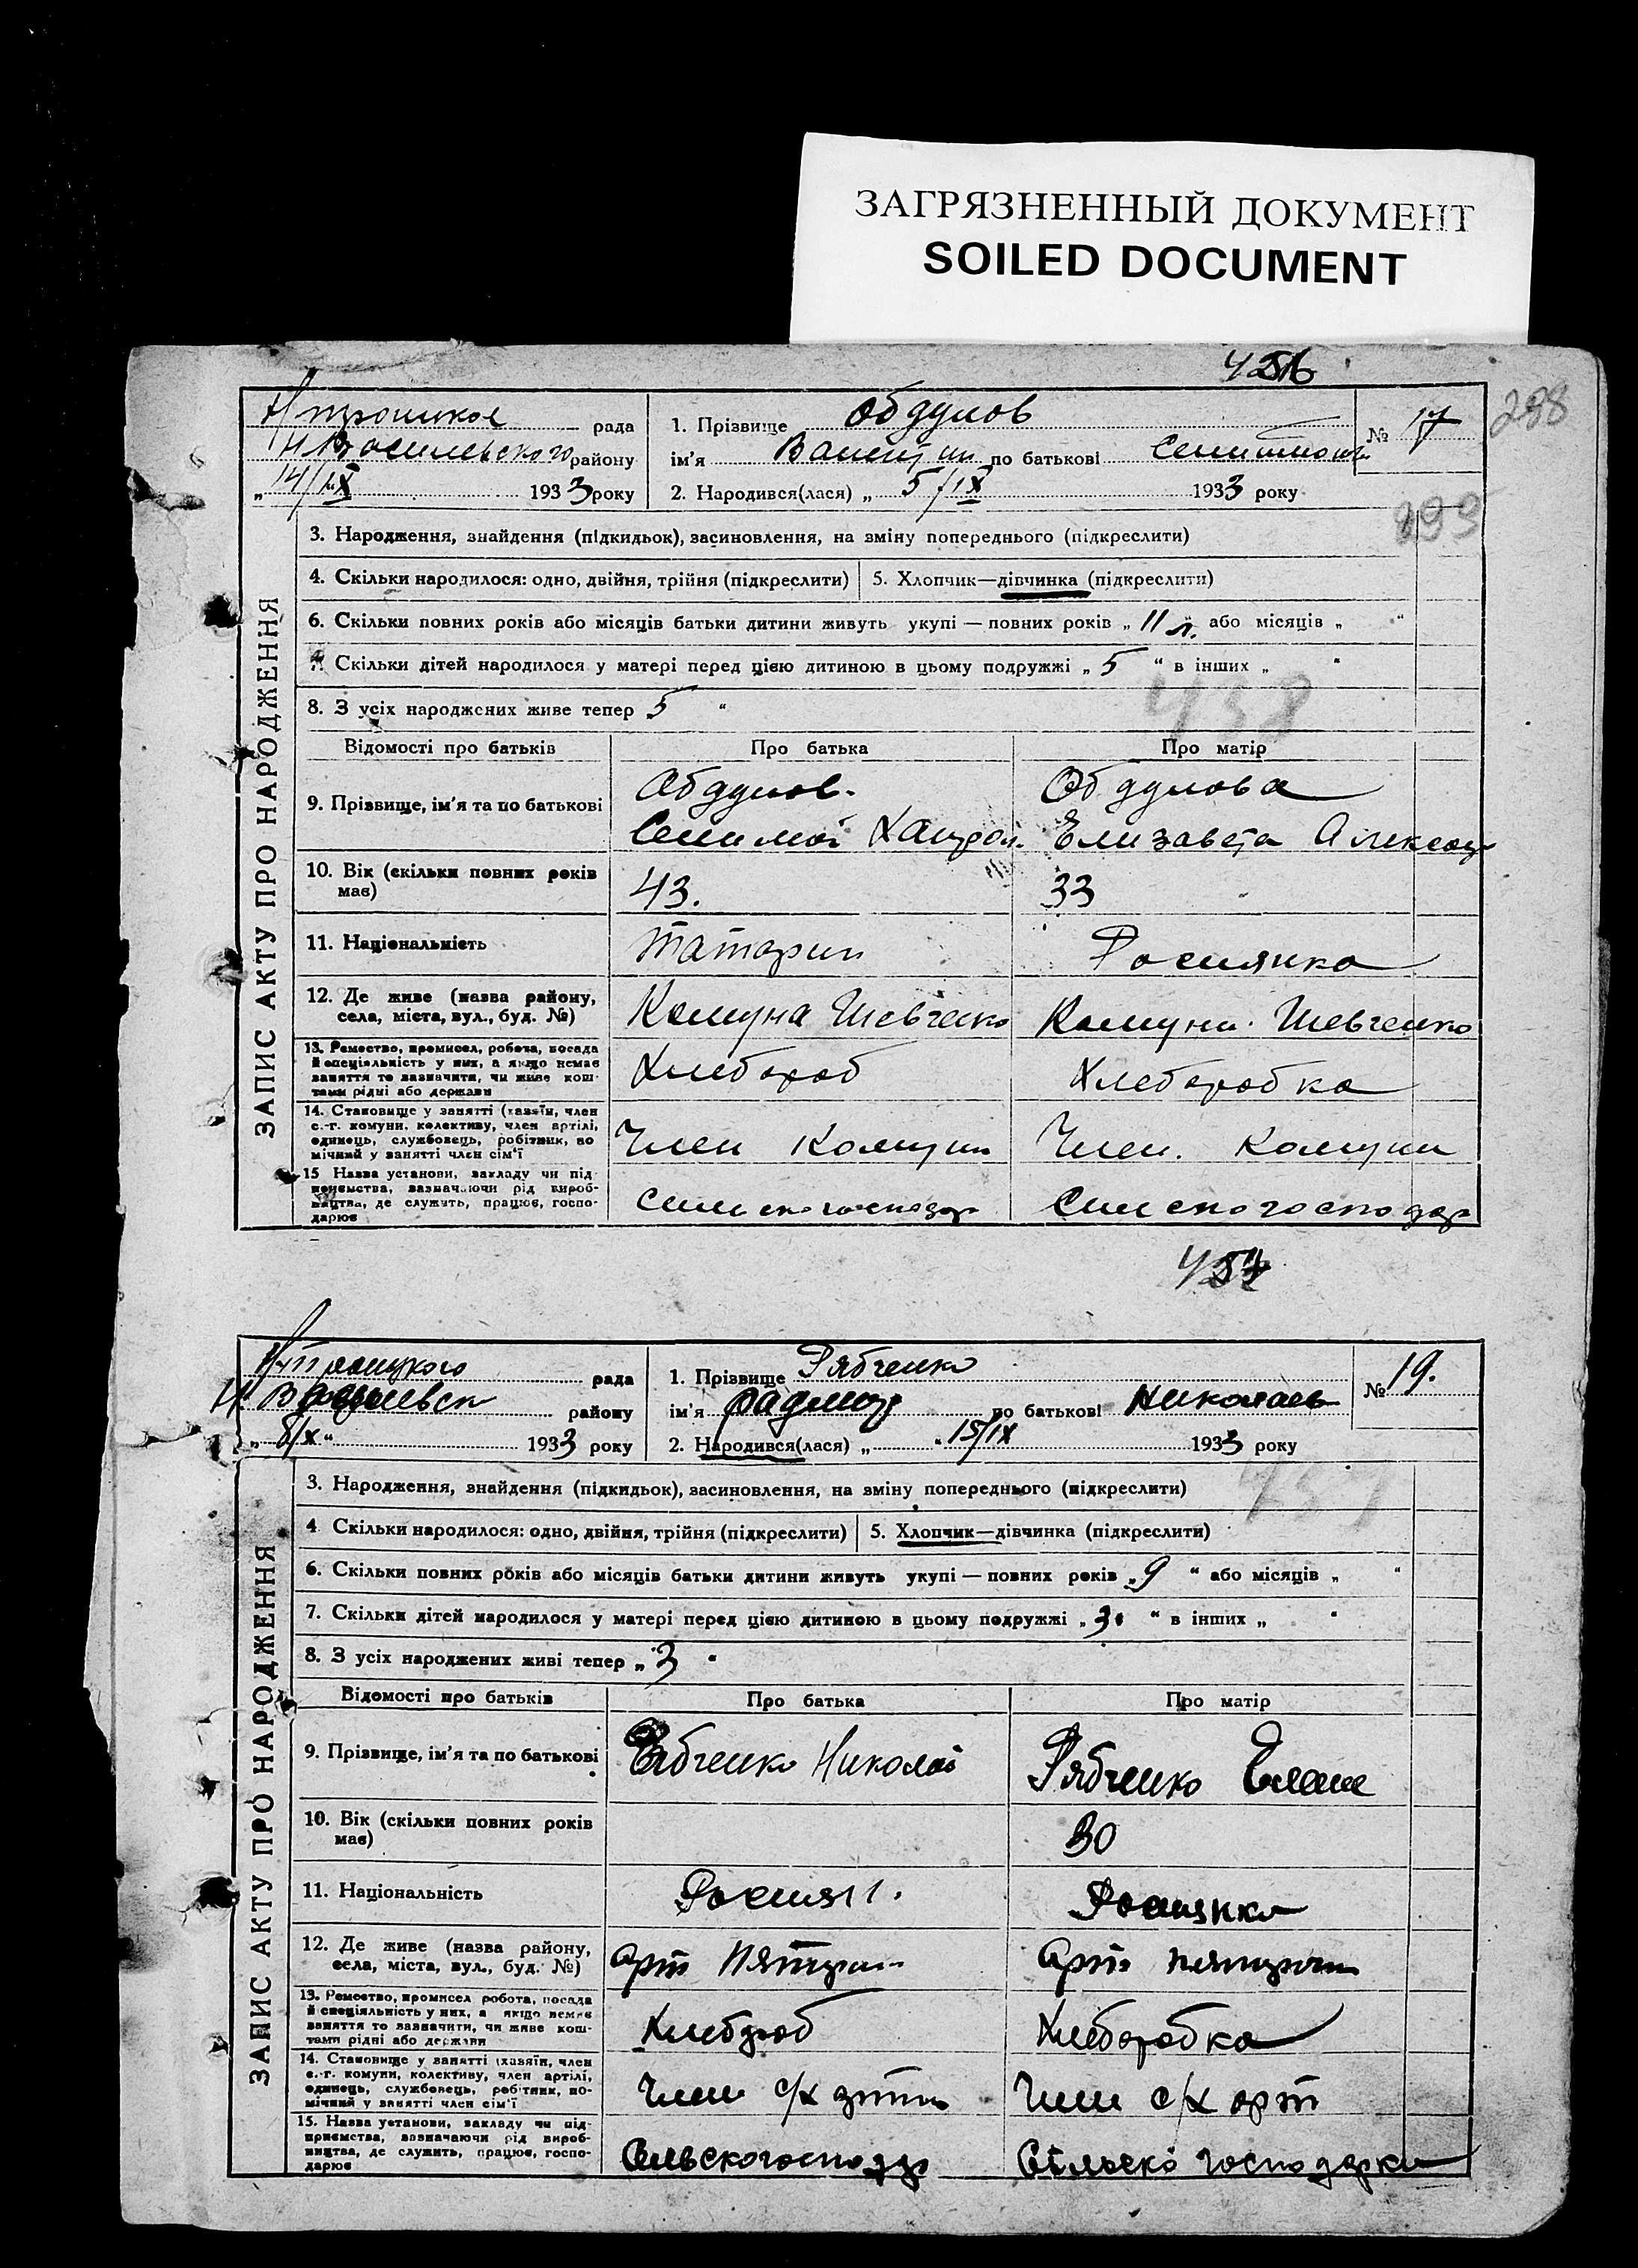 ЗАГРЯЗНЕННЫЙ ДОКУМЕНТ
SOILED DOCUMENT
298
рада
№ 17
1. Прізвище Обдулов
района
району
ім'я по батькові
„14/IX 1933 року
2. Народився(лася) „ 5/IX 1933 року
ЗАПИС АКТУ ПРО НАРОДЖЕННЯ
3. Народження, знайдення (підкидьок), засиновлення, на зміну попереднього (підкреслити)
4. Скільки народилося: одно, двійня, трійня (підкреслити)
5. Хлопчик—дівчинка (підкреслити)
6. Скільки повних років або місяців батьки дитини живуть укупі — повних років „ 11 л. або місяців „ “
7. Скільки дітей народилося у матері перед цією дитиною в цьому подружжі „ 5 “ в інших „ “
438
8. З усіх народжених живе тепер 5 “
Відомості про батьків
Про батька
Про матір
9. Прізвище, ім'я та по батькові
Обдулов.
Обдулова
Елизавета Александр
10. Вік (скільки повних років має)
43.
33
11. Національність
Татарин
Росиянка
12. Де живе (назва району, села, міста, вул., буд. №)
Комуна Шевченко
Комуна Шевченко
13. Ремество, промисел, робота, посада й спеціальність у них, а якщо немає заняття то зазначити, чи живе коштами рідні або держави
Хлебороб
Хлеборобка
14. Становище у занятті (хазяїн, член с.-г. комуни, колективу, член артілі, одинець, службовець, робітник, помічний у занятті член сім'ї
Член Комуни
Член. Комуни
15 Назва установи, закладу чи підприємства, зазначаючи рід виробництва, де служить, працює, господарює
Сельскогосподар
Сельскогосподар
рада
№ 19.
1. Прізвище Рябченко
району
ім'я по батькові Николаев
„ 8/X “ 1933 року
2. Народився(лася) „ “ 15/IX 1933 року
457
ЗАПИС АКТУ ПРО НАРОДЖЕННЯ
3. Народження, знайдення (підкидьок), засиновлення, на зміну попереднього (підкреслити)
4 Скільки народилося: одно, двійня, трійня (підкреслити)
5. Хлопчик—дівчинка (підкреслити)
6. Скільки повних років або місяців батьки дитини живуть укупі — повних років „ 9 “ або місяців „ “
7. Скільки дітей народилося у матері перед цією дитиною в цьому подружжі „ 3 “ в інших „ “
8. З усіх народжених живі тепер „ 3 “
Відомості про батьків
Про батька
Про матір
9. Прізвище, ім'я та по батькові
Рябченко Николай
Рябченко Елена
10. Вік (скільки повних років має)
30
11. Національність
Росиян.
Росиянка
12. Де живе (назва району, села, міста, вул., буд. №)
Арт
Арт.
13. Ремество, промисел робота, посада й спеціяльність у них, а якщо немає заняття то зазначити, чи живе коштами рідні або держави
Хлебороб
Хлеборобка
14. Становище у занятті (хазяїн, член с.-г. комуни, колективу, член артілі, одинець, службовець, робітник, помічний у занятті член сім'ї
Член с/х
Член с/х арт
15. Назва установи, закладу чи підприємства, зазначаючи рід виробництва, де служить, працює, господарює
Сельскогосподар
Сільско господарки